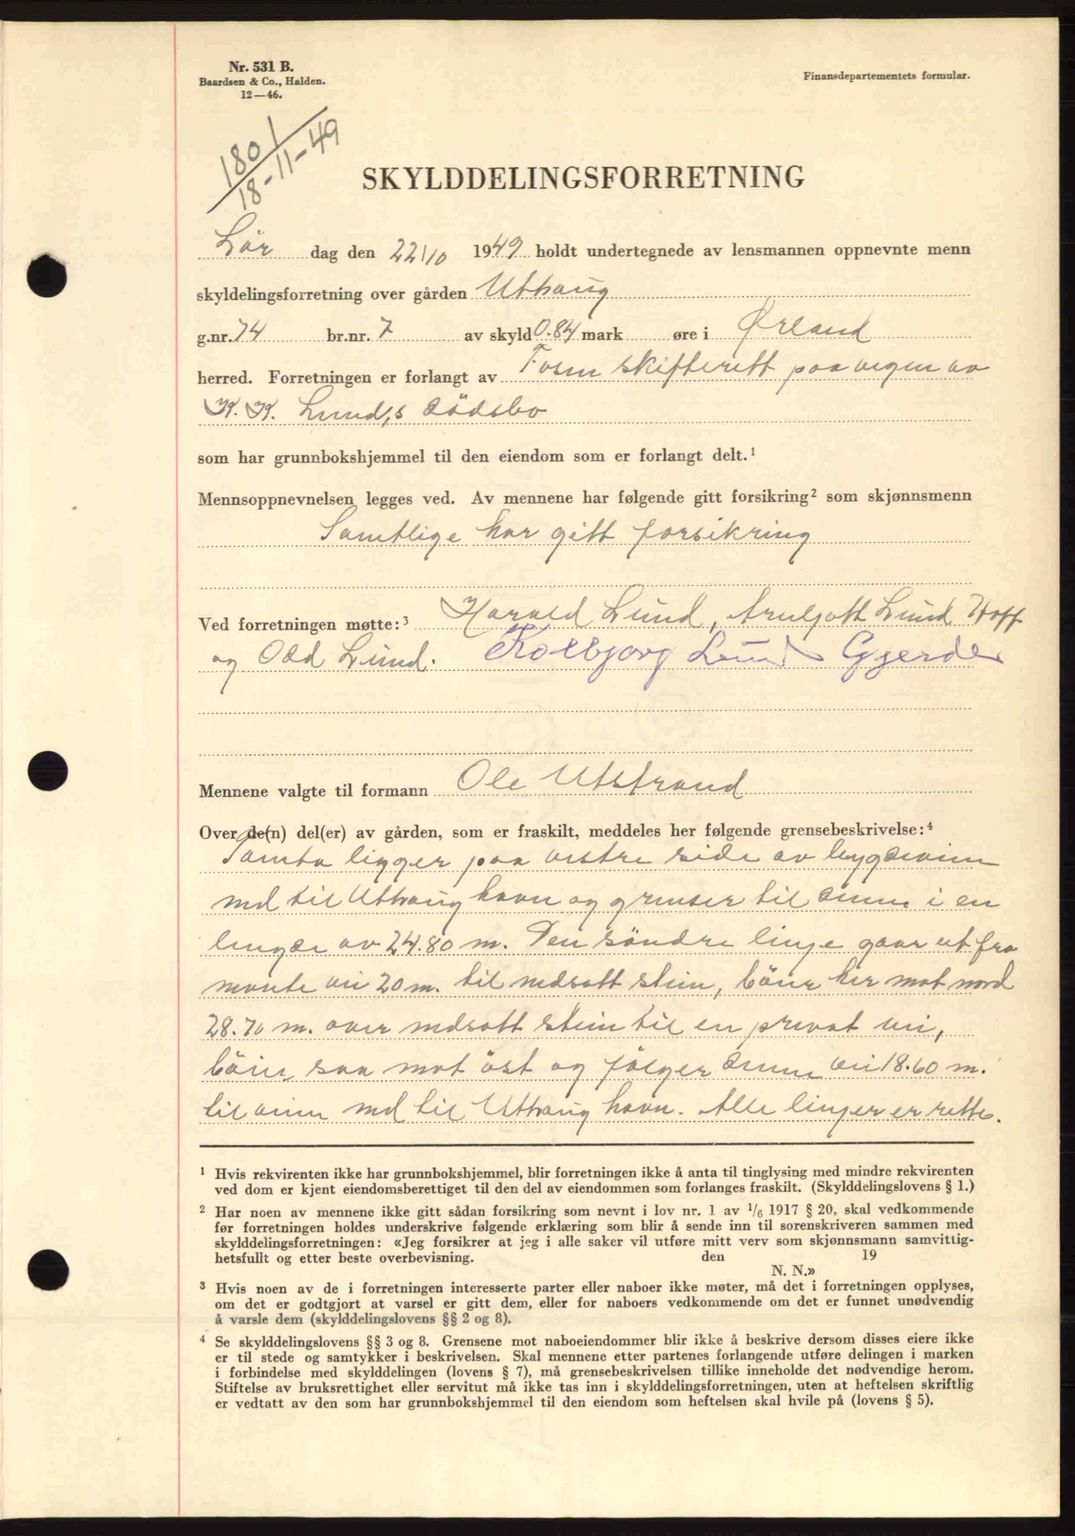 Nr. 531 B.
Baardsen & Co., Halden.
12—46.
Finansdepartementets formular.
1801
18-11-49
SKYLDDELINGSFORRETNING
Lör dag den 22/10 1949 holdt undertegnede av lensmannen oppnevnte menn
skyldelingsforretning over gården Uthaug
g.nr. 74 br.nr. 7 av skyld 0.84 mark øre i Ørland
herred. Forretningen er forlangt av Fosen skifterett paa vegne av
K. K. Lund,s dödsbo
som har grunnbokshjemmel til den eiendom som er forlangt delt.¹
Mennsoppnevnelsen legges ved. Av mennene har følgende gitt forsikring² som skjønnsmenn
Samtlige har gitt forsikring
Ved forretningen møtte:³ Harald Lund, Arnljott Lund Hoff
og Odd Lund. Kolbjørg Lund Gjerde
Mennene valgte til formann Ole Utstrand
Over de(n) del(er) av gården, som er fraskilt, meddeles her følgende grensebeskrivelse:⁴
Tomta ligger paa vestre side av bygdeveien
ned til Uthaug havn og grenser til denne i en
lengde av 24.80 m. Den söndre linje gaar ut fra
vei 20 m. til nedsatt stein, böier her mot nord
28.70 m. over nedsatt stein til en privat vei,
böier saa mot öst og fölger denne vei 18.60 m.
til veien ned til Uthaug havn. Alle linjer er rette.
¹ Hvis rekvirenten ikke har grunnbokshjemmel, blir forretningen ikke å anta til tinglysing med mindre rekvirenten
ved dom er kjent eiendomsberettiget til den del av eiendommen som forlanges fraskilt. (Skylddelingslovens § 1.)
² Har noen av mennene ikke gitt sådan forsikring som nevnt i lov nr. 1 av ¹/₆ 1917 § 20, skal vedkommende
før forretningen holdes underskrive følgende erklæring som blir å sende inn til sorenskriveren sammen med
skylddelingsforretningen: «Jeg forsikrer at jeg i alle saker vil utføre mitt verv som skjønnsmann samvittig-
hetsfullt og etter beste overbevisning. den 19
N. N.»
³ Hvis noen av de i forretningen interesserte parter eller naboer ikke møter, må det i forretningen opplyses,
om det er godtgjort at varsel er gitt dem, eller for naboers vedkommende om det er funnet unødvendig
å varsle dem (skylddelingslovens §§ 2 og 8).
⁴ Se skylddelingslovens §§ 3 og 8. Grensene mot naboeiendommer blir ikke å beskrive dersom disses eiere ikke
er til stede og samtykker i beskrivelsen. Skal mennene etter partenes forlangende utføre delingen i marken
i forbindelse med skylddelingen (lovens § 7), må grensebeskrivelsen tillike inneholde det nødvendige herom.
Stiftelse av bruksrettighet eller servitut må ikke tas inn i skylddelingsforretningen, uten at heftelsen skriftlig
er vedtatt av den som har grunnbokshjemmel til den eiendom som heftelsen skal hvile på (lovens § 5).